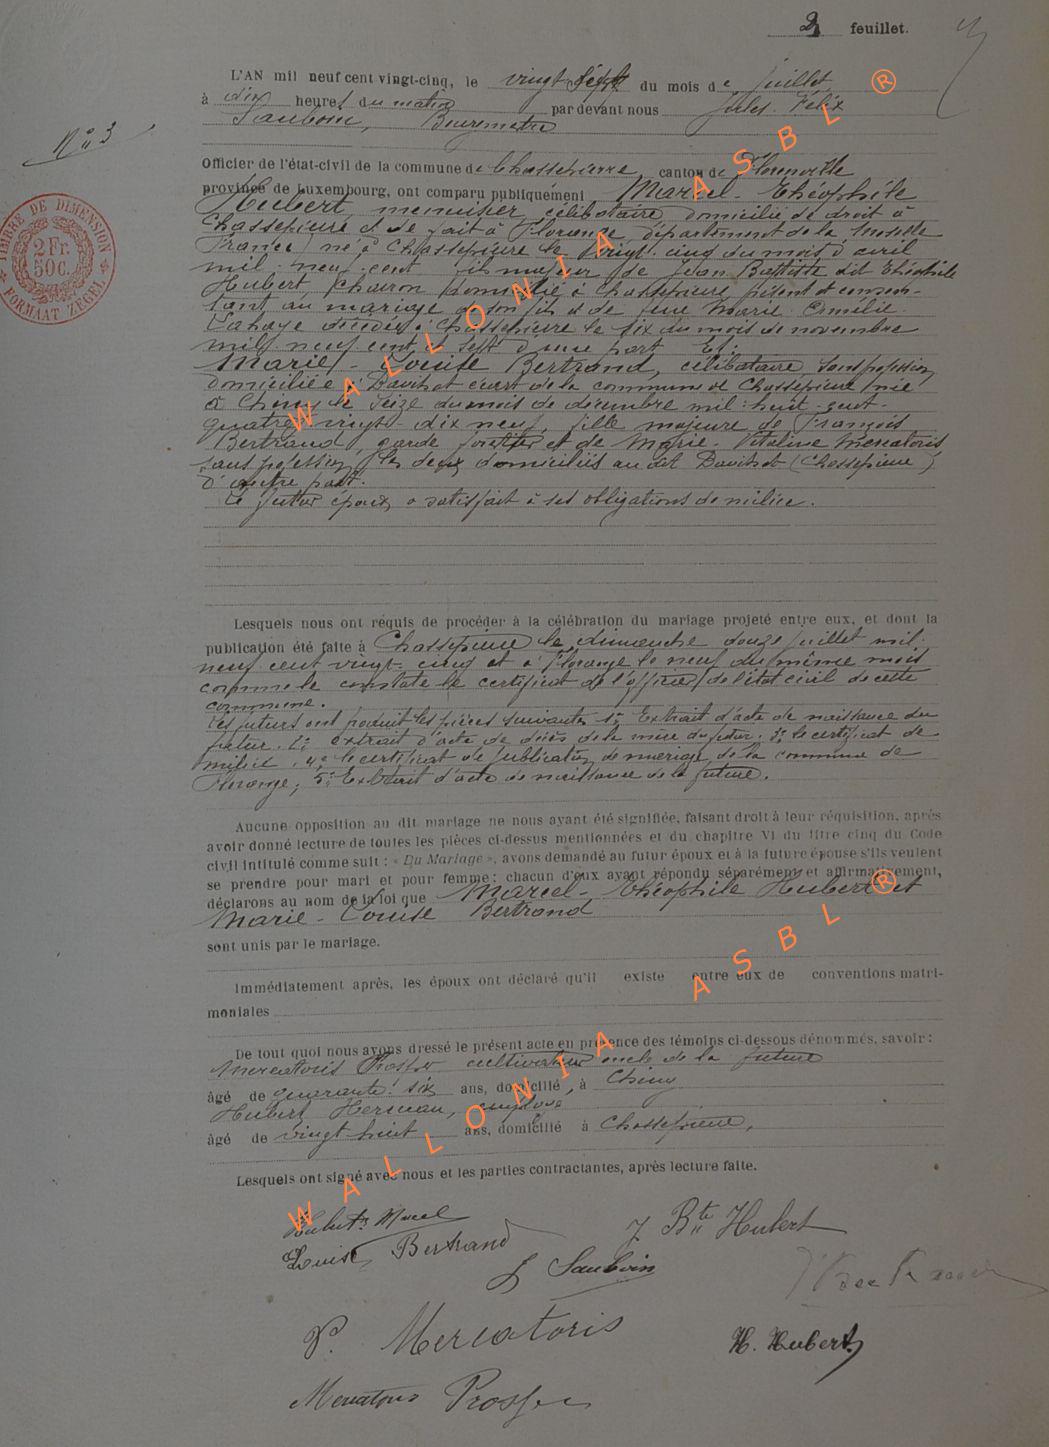 2 feuillet.
L'AN mil neuf cent vingt-cinq, le vingt sept du mois de juillet
à dix heures du matin par devant nous Jules Félix
Sauboin, Bourgmestre
N° 3
Officier de l'état-civil de la commune de Chassepierre, canton de Florenville
province de Luxembourg, ont comparu publiquement Marcel-Théophile
Hubert, menuisier, célibataire, domicilié de droit à
Chassepierre et de fait à Florange, département de la Moselle
(France) né à Chassepierre le vingt-cinq du mois d'avril
mil-neuf-cent, fils majeur de Jean Baptiste dit Théophile
Hubert, charron, domicilié à Chassepierre, présent et consen-
tant au mariage de son fils et de feue Marie Ermélie
Lahaye décédée à Chassepierre le six du mois de novembre
mil neuf cent et sept d'une part Et:
Marie-Louise Bertrand, célibataire, sans profession,
domiciliée à Davihat écart de la commune de Chassepierre, née
à Chiny le seize du mois de décembre mil-huit-cent-
quatre-vingt-dix neuf, fille majeure de François
Bertrand, garde forestier et de Marie-Vitaline Mercatoris,
sans profession, les deux domiciliés au dit Davihat (Chassepierre)
d'autre part.
Le futur époux a satisfait à ses obligations de milice.
Lesquels nous ont réquis de procéder à la célébration du mariage projeté entre eux, et dont la
publication été faite à Chassepierre le dimanche douze juillet mil
neuf cent vingt-cinq et à Florange le neuf du même mois
comme le constate le certificat de l'officier de l'état civil de cette
commune.
Les futurs ont produit les pièces suivantes 1° Extrait d'acte de naissance du
futur. 2° extrait d'acte de décès de la mère du futur. 3° le certificat de
milice. 4° le certificat de publication de mariage de la commune de
Florange, 5° Extrait d'acte de naissance de la future.
Aucune opposition au dit mariage ne nous ayant été signifiée, faisant droit à leur réquisition, après
avoir donné lecture de toutes les pièces ci-dessus mentionnées et du chapitre VI du titre cinq du Code
civil intitulé comme suit : « Du Mariage », avons demandé au futur époux et à la future épouse s'ils veulent
se prendre pour mari et pour femme: chacun d'eux ayant répondu séparément et affirmativement,
déclarons au nom de la loi que Marcel-Théophile Hubert et
Marie-Louise Bertrand
sont unis par le mariage.
Immédiatement après, les époux ont déclaré qu'il existe entre eux de conventions matri-
moniales
De tout quoi nous avons dressé le présent acte en présence des témoins ci-dessous dénommés, savoir:
Mercatoris Prosper cultivateur oncle de la future
âgé de quarante-six ans, domicilié à Chiny
Hubert Herman, employé
âgé de vingt-huit ans, domicilié à Chassepierre,
Lesquels ont signé avec nous et les parties contractantes, après lecture faite.
Hubert Marcel
J Bte Hubert
Louise Bertrand
J Sauboin
P. Mercatoris
H. Hubert
Mercatoris Prosper
TIMBRE DE DIMENSION
2 Fr.
50c.
FORMAAT ZEGEL
WALLONIA ASBL ®
WALLONIA ASBL ®